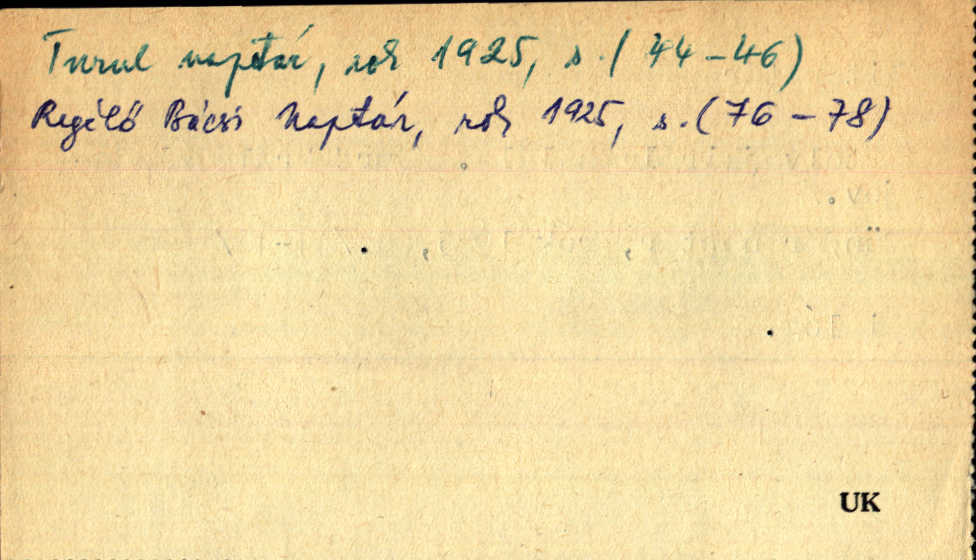 Turul naptár, rok 1925, s. (44-46)
Regélő Bácsi Naptár, rok 1925, s. (76-78)
UK